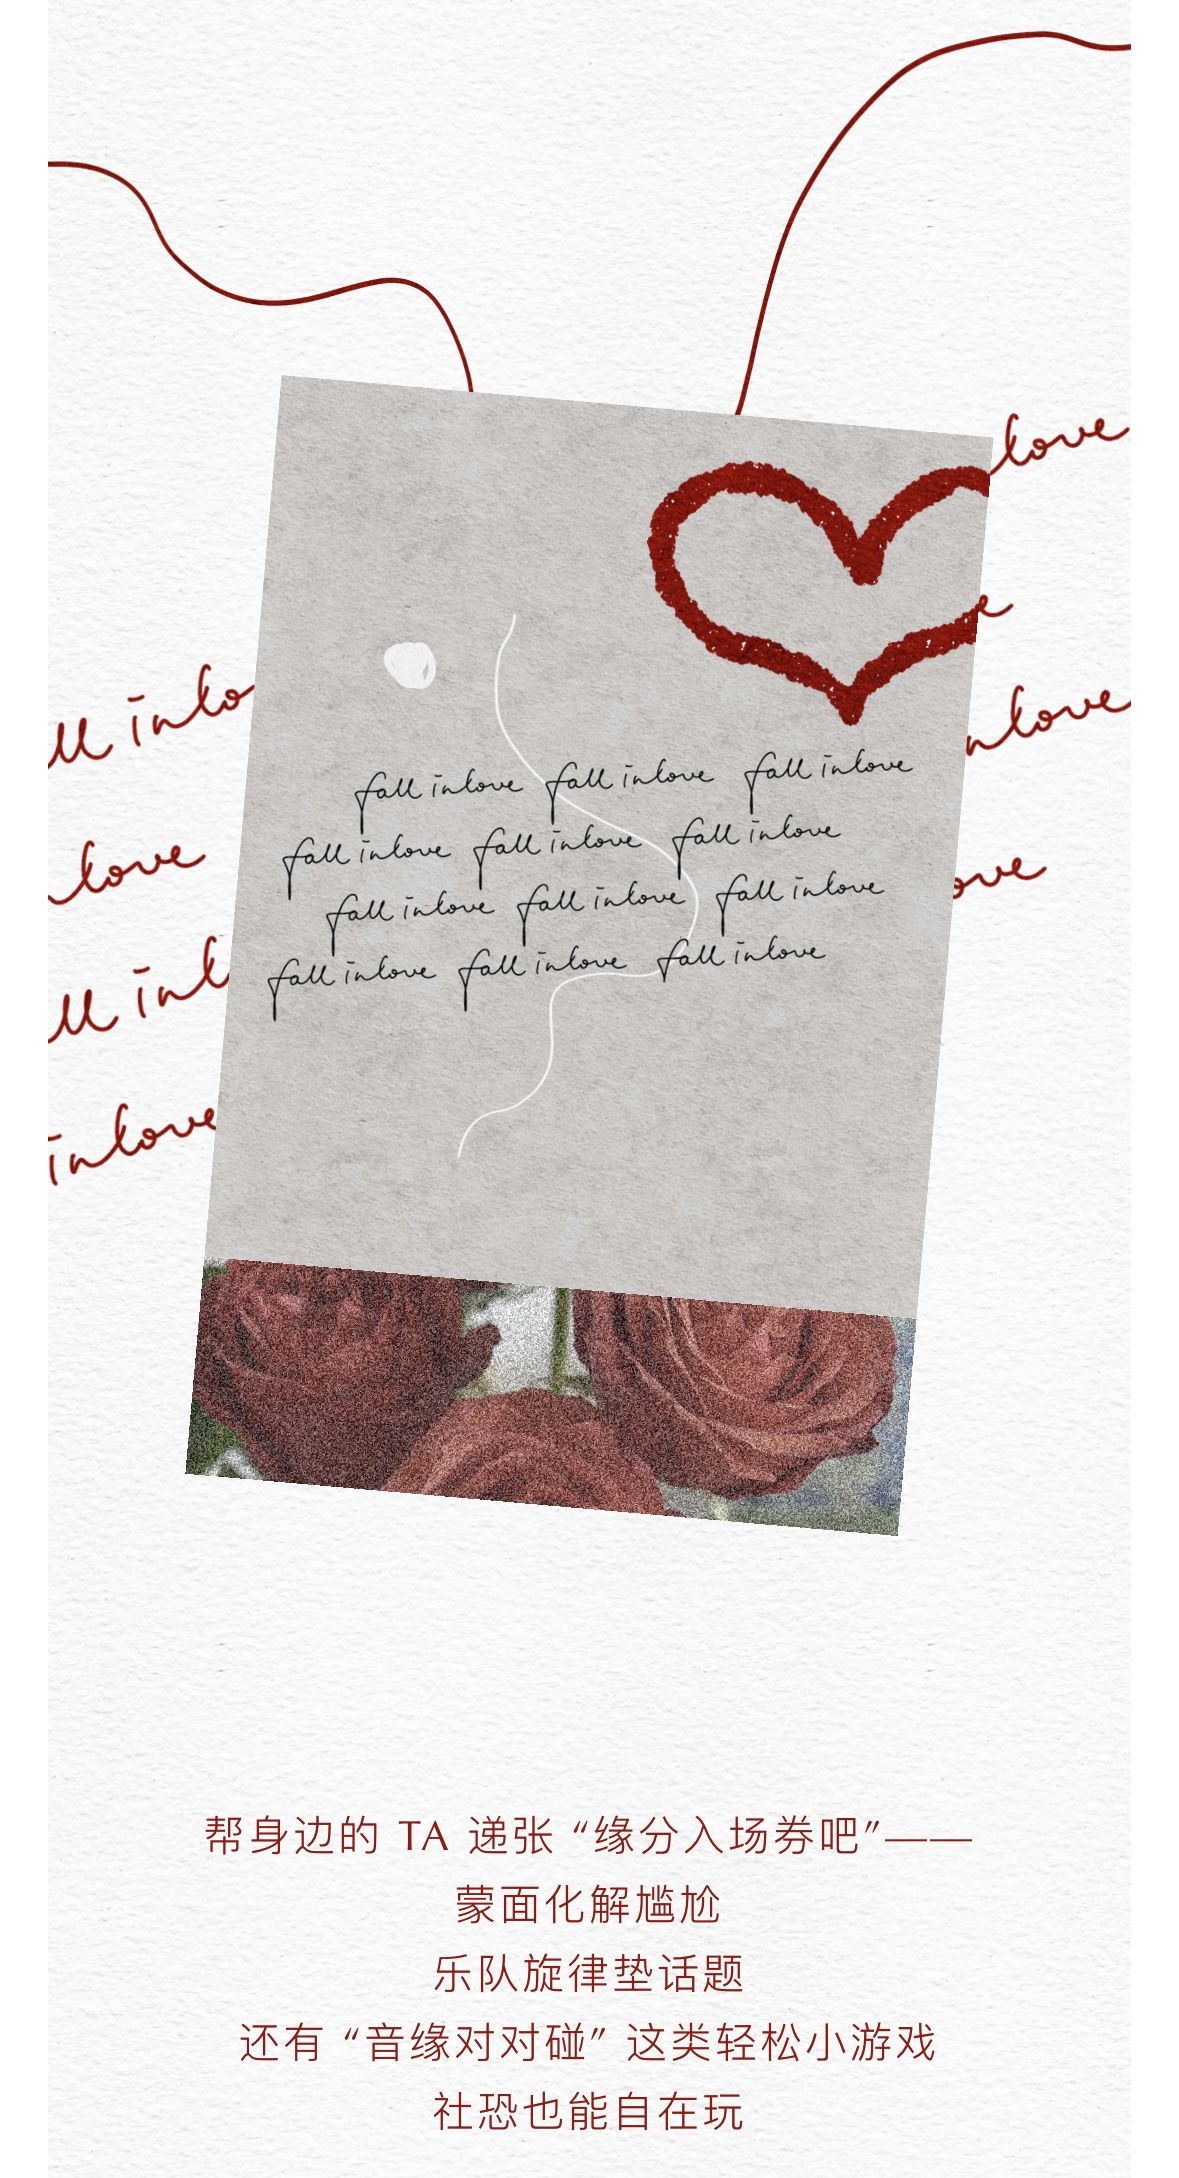 love
e
ll inlo
nlove
fall inlove fall inlove fall inlove
fall inlove fall inlove fall inlove
love
ove
fall inlove fall inlove fall inlove
fall inlove fall inlove fall inlove
ll inl
inlove
帮身边的 TA 递张 “缘分入场券吧”——
蒙面化解尴尬
乐队旋律垫话题
还有 “音缘对对碰” 这类轻松小游戏
社恐也能自在玩